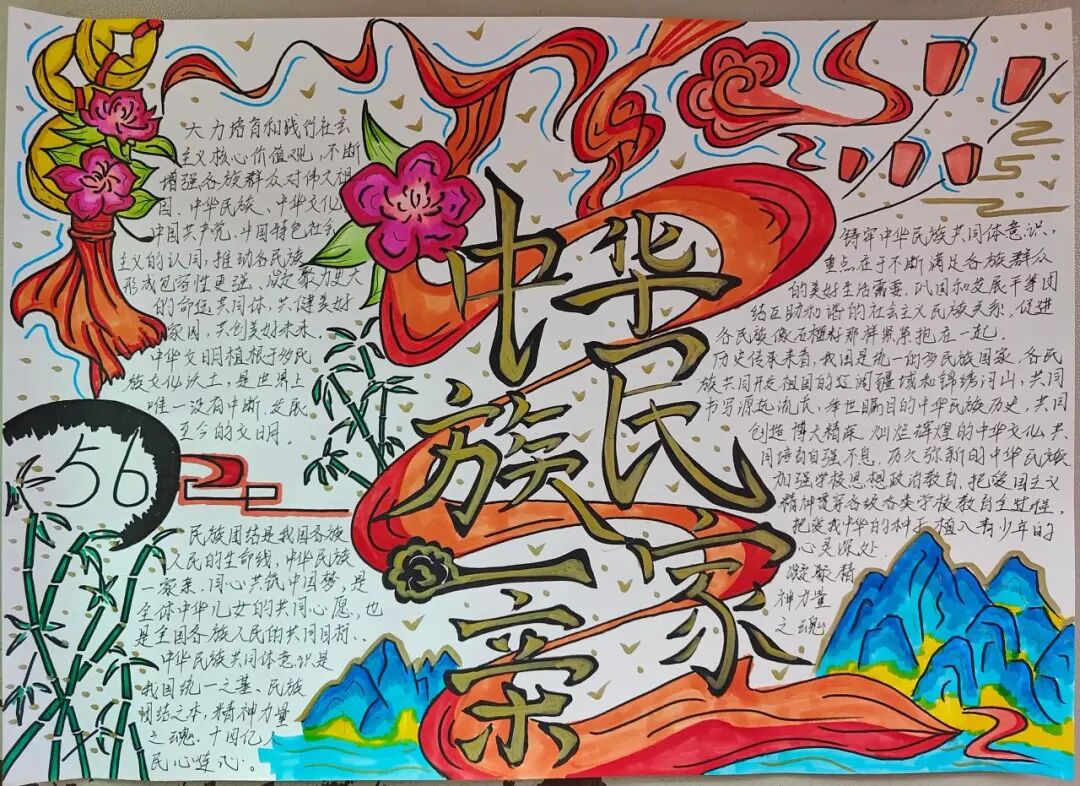 大力培育和践行社会
主义核心价值观，不断
增强各族群众对伟大祖
国、中华民族、中华文化、
中国共产党、中国特色社会
主义的认同，推动各民族
形成包容性更强、凝聚力更大
的命运共同体，共健美好
家园，共创美好未来。
中华文明植根于多民
族文化沃土，是世界上
唯一没有中断、发展
至今的文明。
56
民族团结是我国各族
人民的生命线，中华民族
一家亲，同心共筑中国梦，是
全体中华儿女的共同心愿，也
是全国各族人民的共同目标。
中华民族共同体意识是
我国统一之基、民族
团结之本，精神力量
之魂。十四亿人
民心连心。
中华
民族
一家
亲
铸牢中华民族共同体意识，
重点在于不断满足各族群众
的美好生活需要，巩固和发展平等团
结互助和谐的社会主义民族关系，促进
各民族像石榴籽那样紧紧抱在一起
历史传承来看，我国是统一的多民族国家，各民
族共同开发祖国的辽阔疆域和锦绣河山，共同
书写源远流长、举世瞩目的中华民族历史，共同
创造博大精深、灿烂辉煌的中华文化，共
同培育自强不息，历久弥新的中华民族
加强学校思想政治教育，把爱国主义
精神贯穿各级各类学校教育全过程，
把爱我中华的种子植入青少年的
心灵深处
凝聚精
神力量
之魂